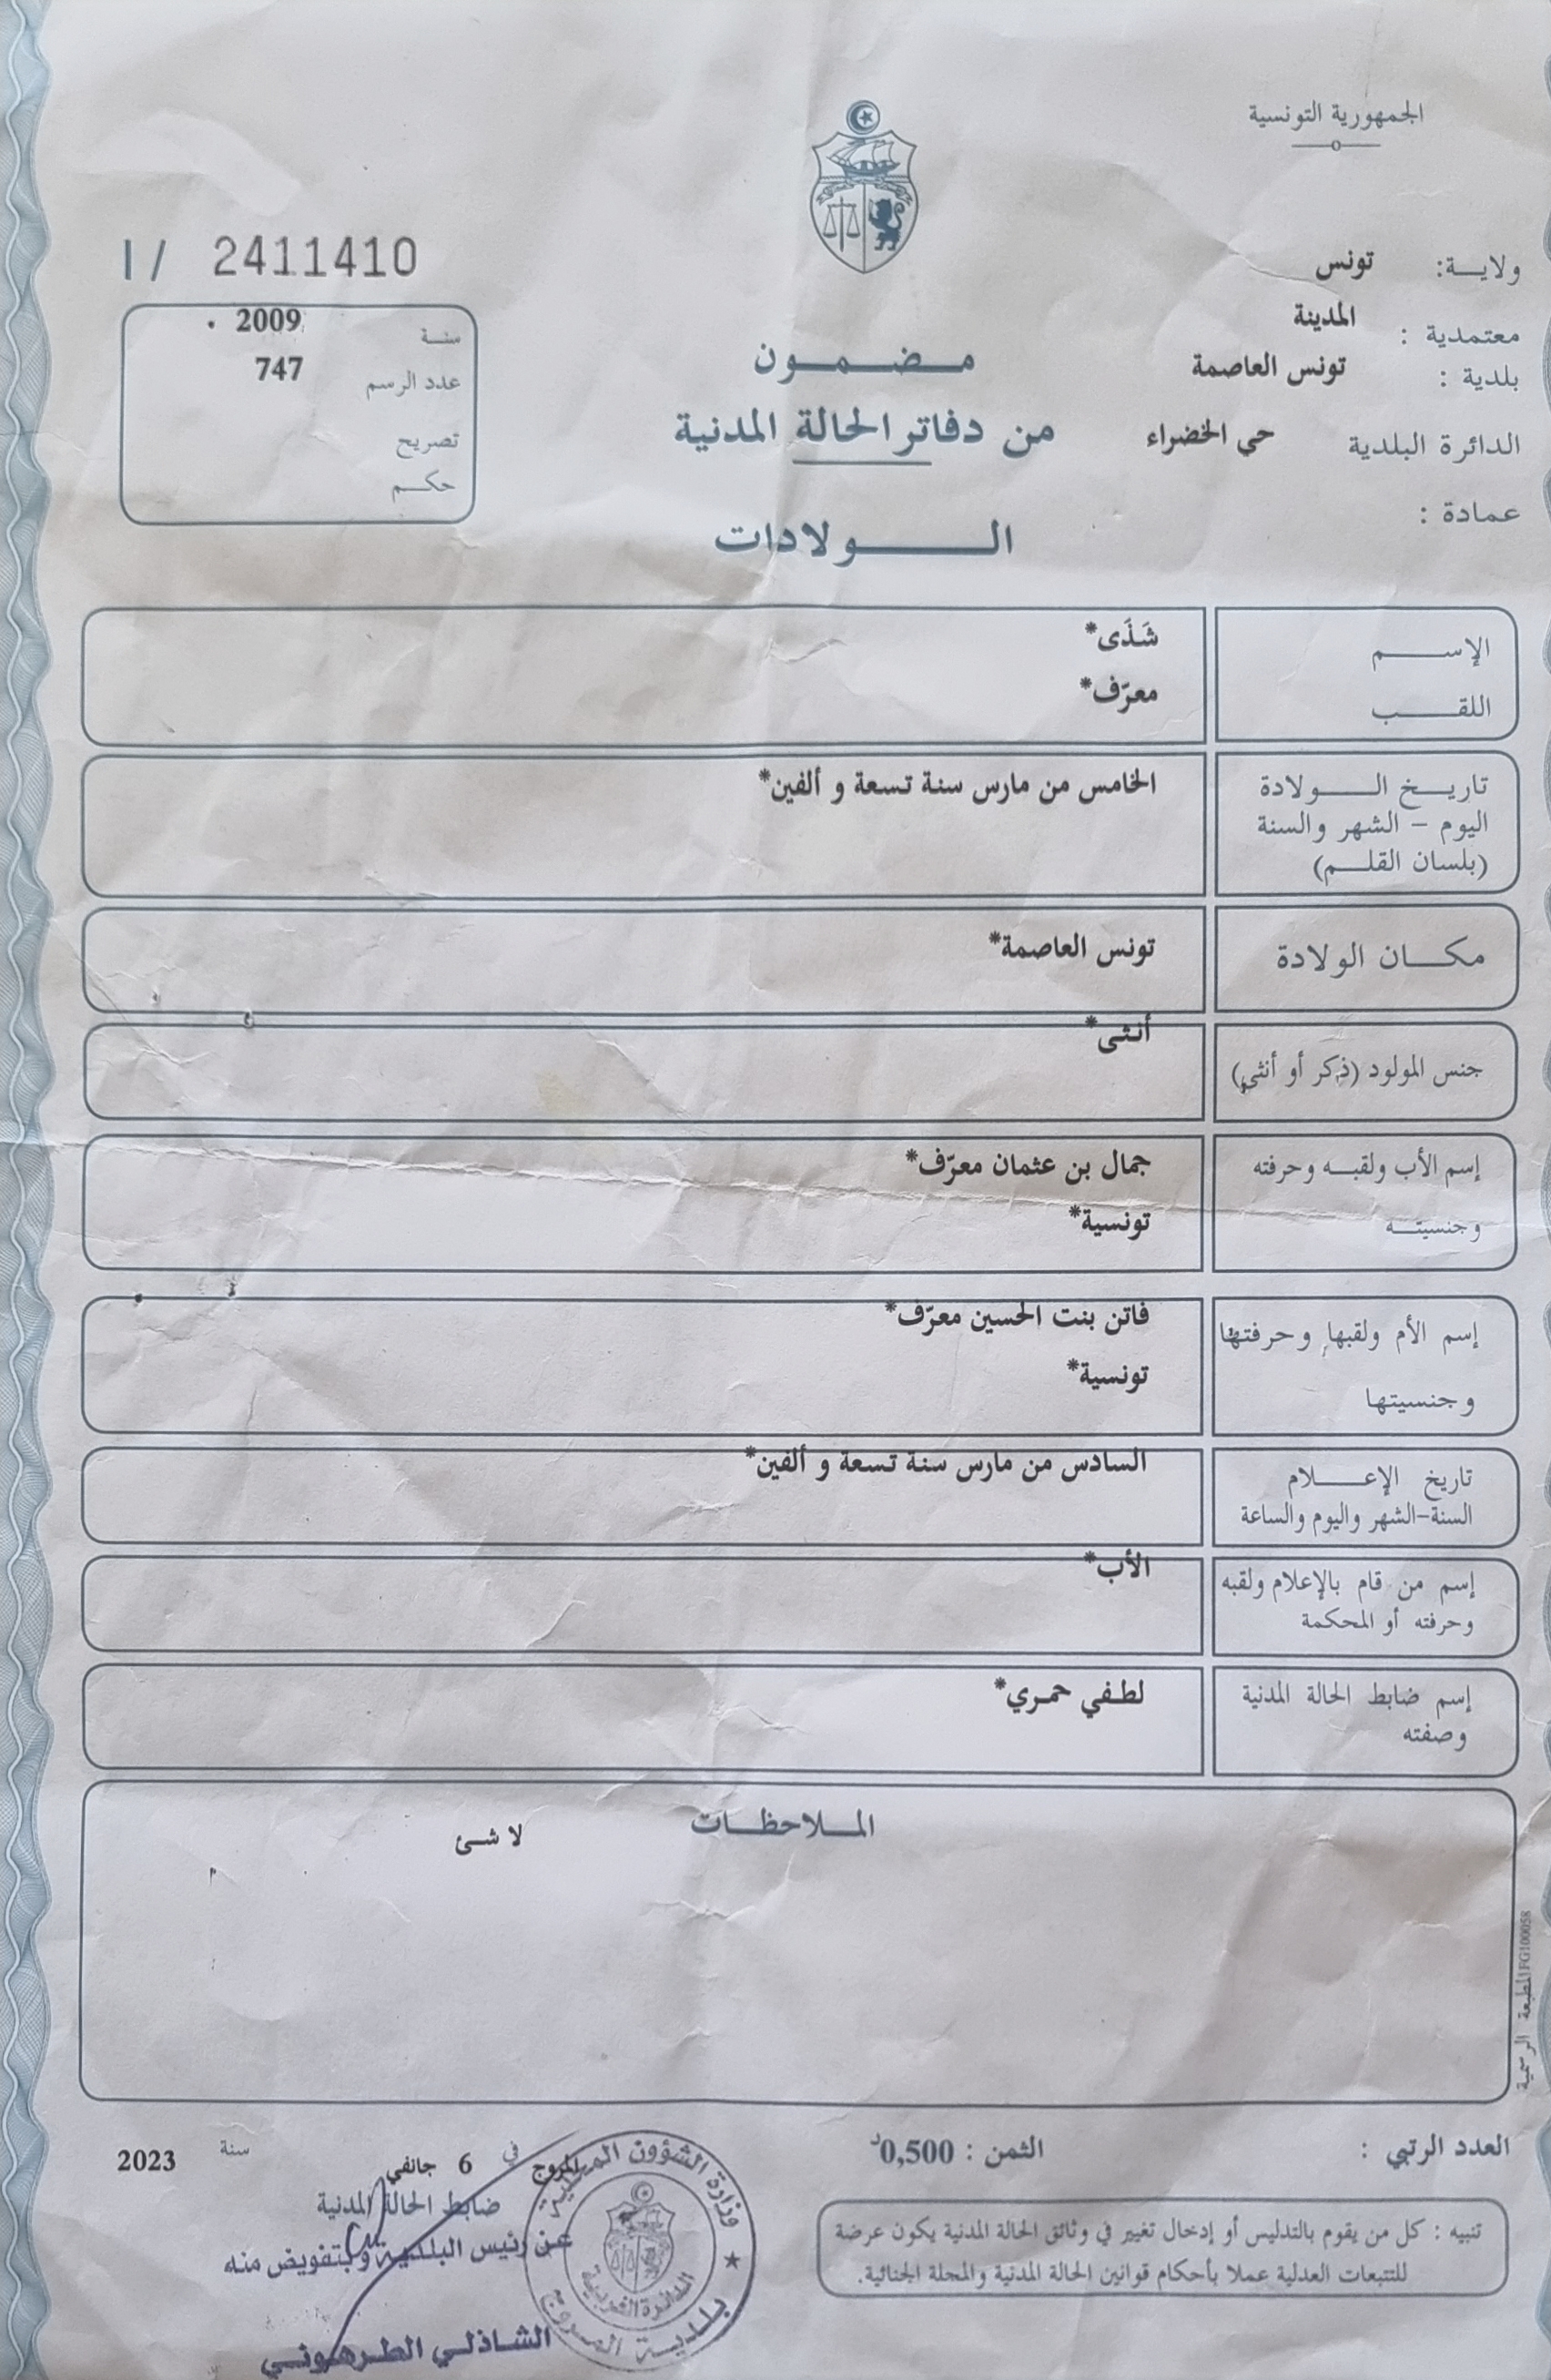 الجمهورية التونسية
ولايـــة: تونس
معتمدية : المدينة
بلدية : تونس العاصمة
الدائرة البلدية حي الخضراء
عمادة :
مـضـمـون
من دفاتر الحالة المدنية
الـــولادات
I / 2411410
سنـة 2009
عدد الرسم 747
تصريح
حكـم
الإســـم شَذَى*
اللقـــب معرّف*
تاريـــخ الـــولادة الخامس من مارس سنة تسعة و ألفين*
اليوم – الشهر والسنة
(بلسان القلـم)
مكـــان الولادة تونس العاصمة*
جنس المولود (ذكر أو أنثى) أنثى*
إسم الأب ولقبـه وحرفته جمال بن عثمان معرّف*
وجنسيتـه تونسية*
إسم الأم ولقبها وحرفتها فاتن بنت الحسين معرّف*
وجنسيتها تونسية*
تاريخ الإعـــلام السادس من مارس سنة تسعة و ألفين*
السنة-الشهر واليوم والساعة
إسم من قام بالإعلام ولقبه الأب*
وحرفته أو المحكمة
إسم ضابط الحالة المدنية لطفي حمري*
وصفته
المــلاحظـــات
لا شئ
المطبعة الرسمية FG100058
العدد الرتبي :
الثمن : 0,500د
المروج في 6 جانفي سنة 2023
ضابط الحالة المدنية
عن رئيس البلدية وبتفويض منه
الشاذلي الطرهوني
وزارة الشؤون المحلية
الدائرة الغربية
بلدية المروج
تنبيه : كل من يقوم بالتدليس أو إدخال تغيير في وثائق الحالة المدنية يكون عرضة
للتتبعات العدلية عملا بأحكام قوانين الحالة المدنية والمجلة الجنائية.